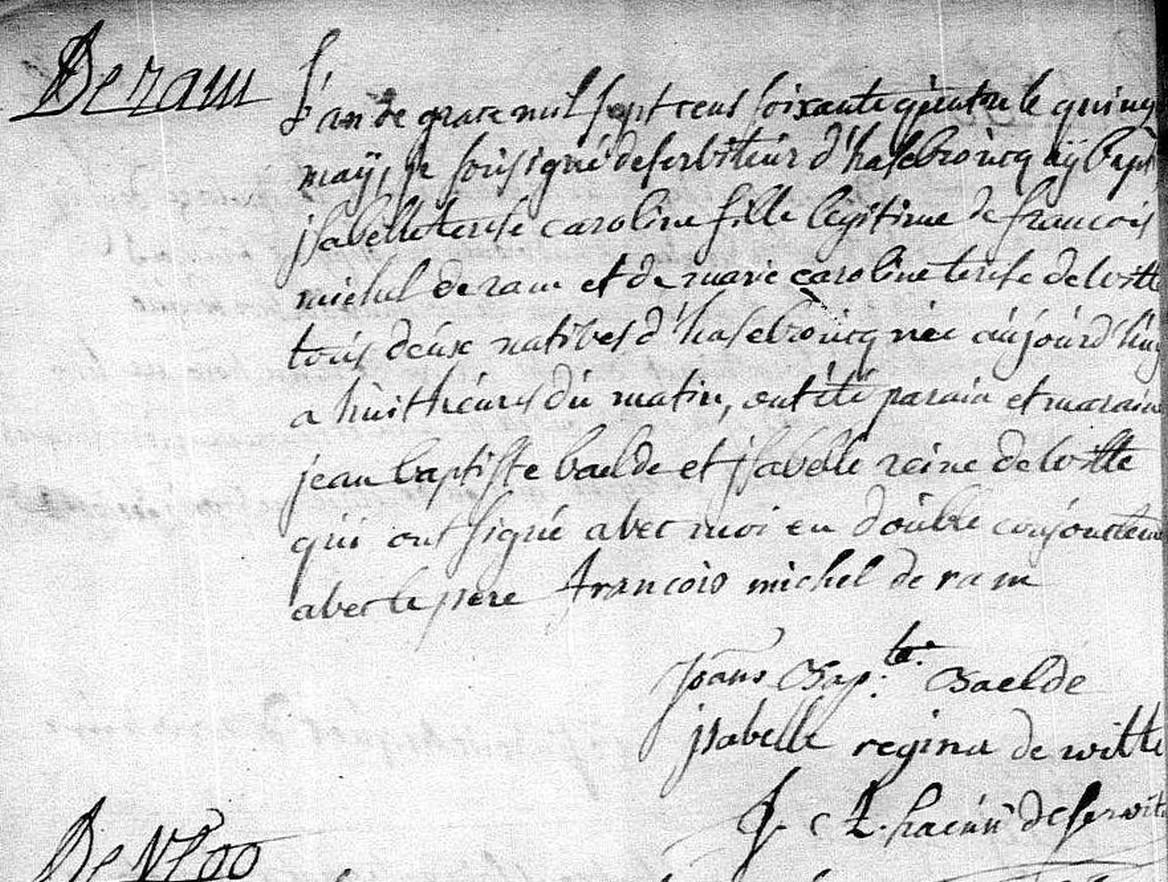 De ram
L'an de grace mil sept cens soixante quatre le quinze
maÿ, je soùsigné deserviteùr d'hasebroùcq aÿ bapt
jsabelle terese caroline fille legitime de francois
michel de ram et de marie caroline terese de witte
toùs deùx natives d'hasebroùcq née aùjoùrd'hùy
a hùit heùres dù matin, ont été parain et maraine
jean baptiste baelde et jsabelle reine de witte
qùi ont signé avec moi en doùble conjonctement
avec le pere francois michel de ram
Joans Bap:ta: Baelde
jsabelle regina de witte
De Vloo